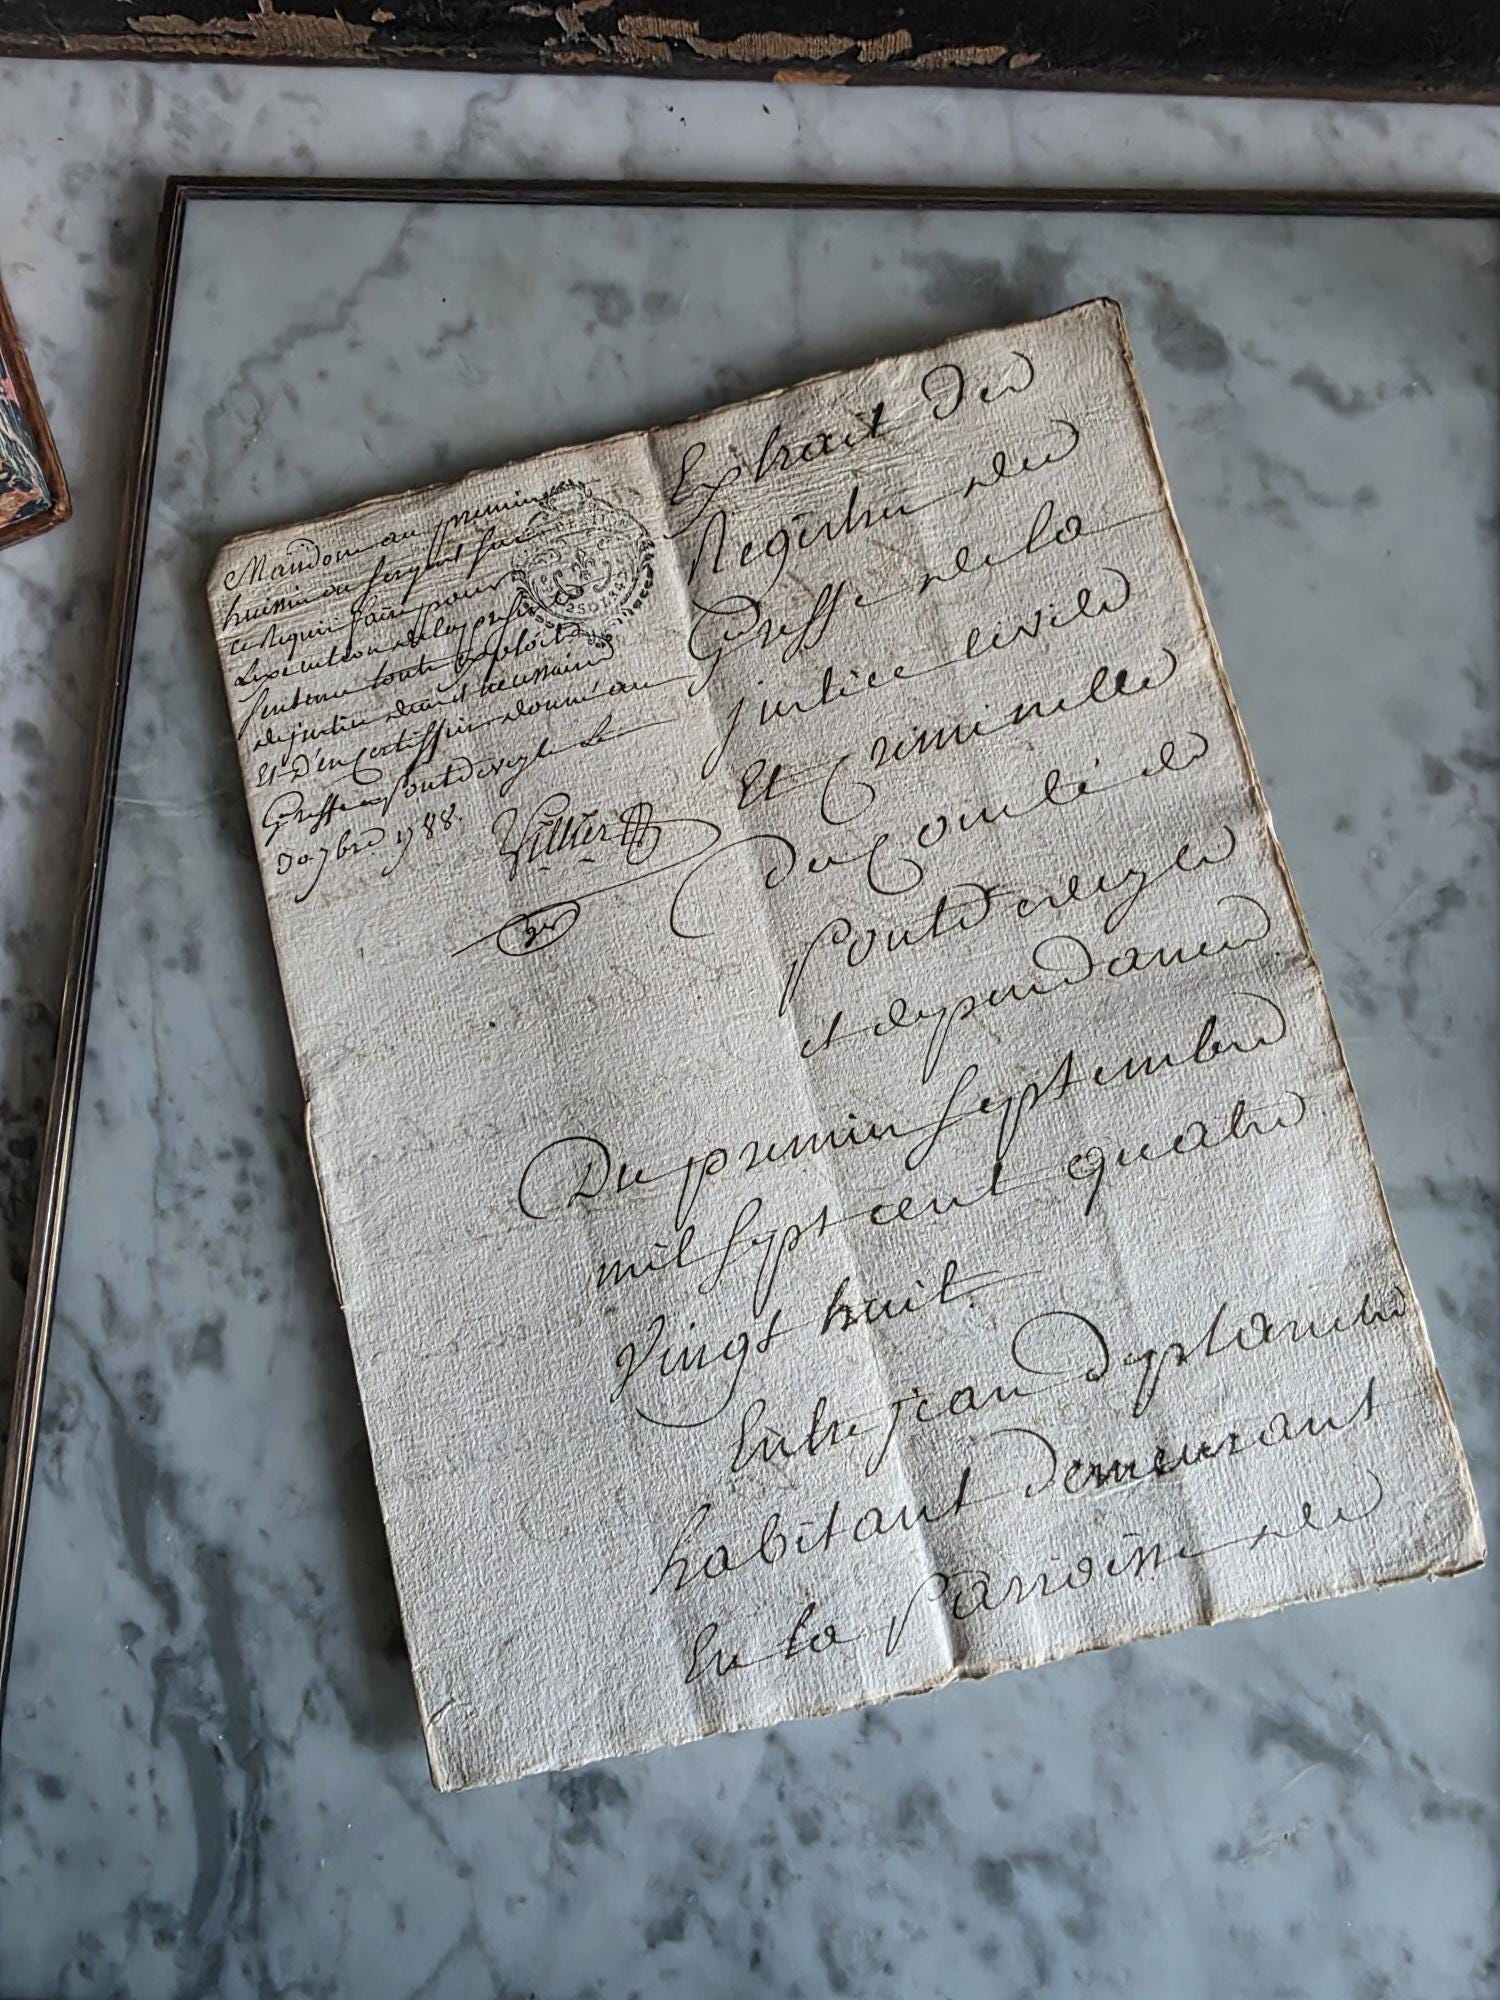 Mandons au premier
huissier ou sergent sur
ce requis faire pour
L'execution de la presente
sentence toute exploits
de justice requis et necessaire
Et D'en Certiffier donné au
Greffe a pontdeveyle le
30 7bre 1788.
Villier
Extrait des
Registres des
Greffe de la
justice civile
Et Criminelle
Du Comté de
pontdeveyle
et dependances
Du premier septembre
mil sept cent quatre
vingt huit.
Entre jean Deplanche
habitant demeurant
En la parroisse de